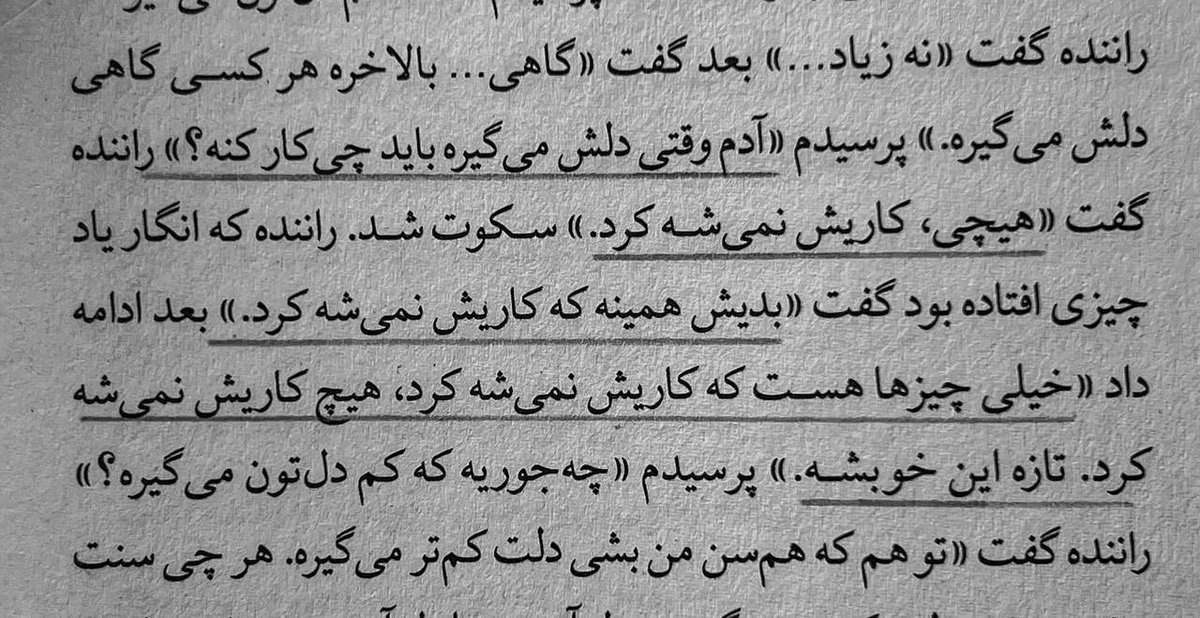 راننده گفت «نه زیاد...» بعد گفت «گاهی... بالاخره هر کسی گاهی
دلش می‌گیره.» پرسیدم «آدم وقتی دلش می‌گیره باید چی‌کار کنه؟» راننده
گفت «هیچی، کاریش نمی‌شه کرد.» سکوت شد. راننده که انگار یاد
چیزی افتاده بود گفت «بدیش همینه که کاریش نمی‌شه کرد.» بعد ادامه
داد «خیلی چیزها هست که کاریش نمی‌شه کرد، هیچ کاریش نمی‌شه
کرد. تازه این خوبشه.» پرسیدم «چه‌جوریه که کم دل‌تون می‌گیره؟»
راننده گفت «تو هم که هم‌سن من بشی دلت کم‌تر می‌گیره. هر چی سنت